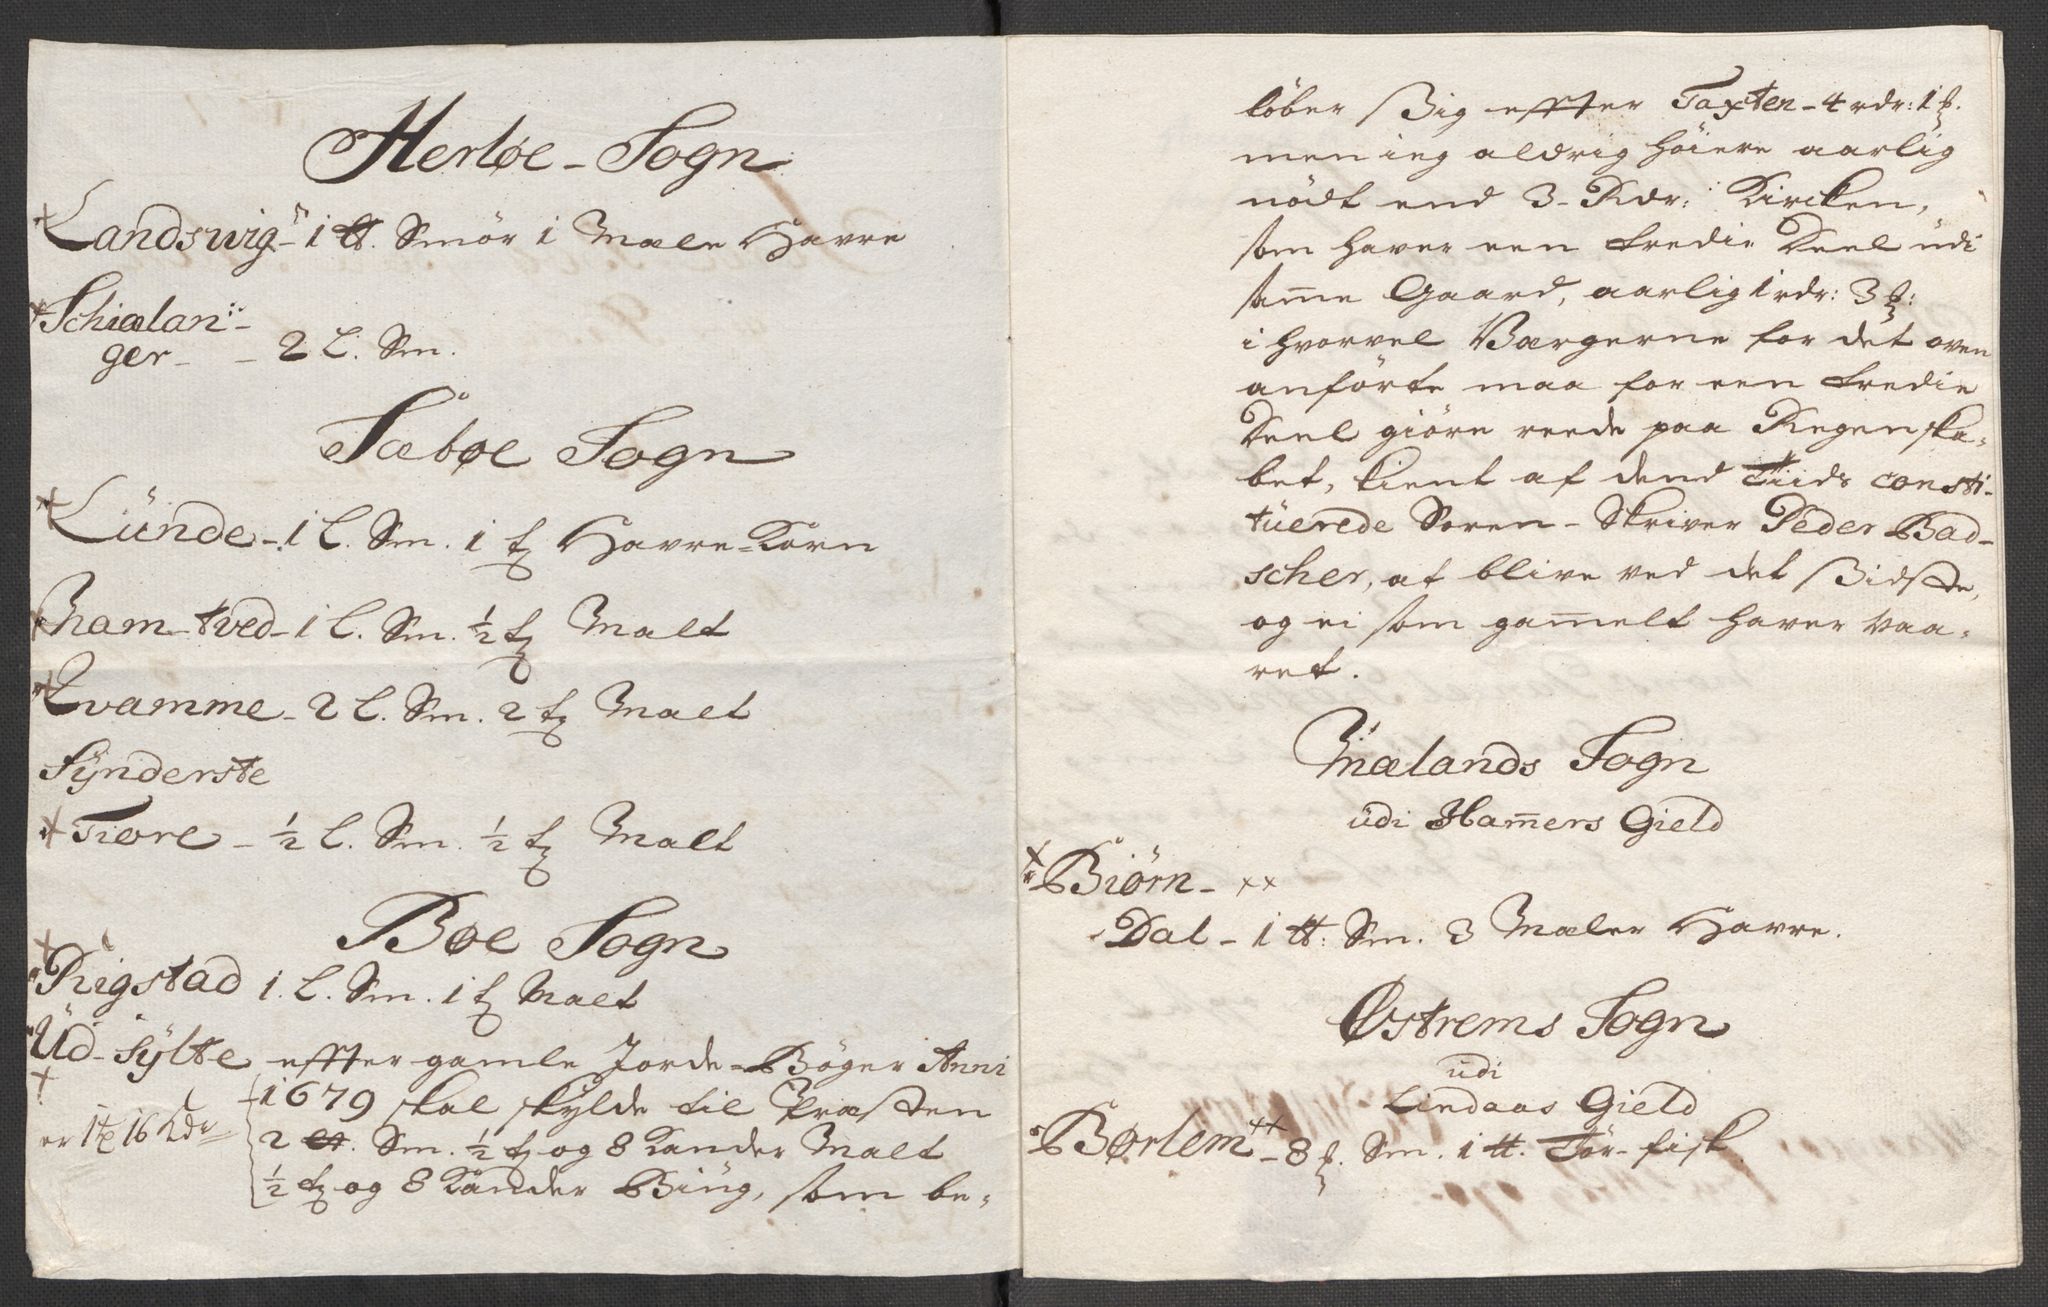 Herløe - Sogn
Landswig - 1 tt. Smør 1 Mæle Havre
Schiælan-
ger - - 2 L. Sm.
Sæbøe Sogn
Lünde - 1 L. Sm. 1 t Havre-Korn
Ham-tved - 1 L. Sm. ½ t Malt
Qvamme - 2 L. Sm. 2 t Malt
Sÿnderste
Fiøre - ½ L. Sm. ½ t Malt
Bøe Sogn
Rigstad 1. L. Sm. 1 t Malt
Üd-Sÿlte effter gamle Jorde-Bøger Anni
1679 skal skylde til Præsten
er 1 t 16 Kdr
2 Sm. ½ t og 8 Kander Malt
½ t og 8 Kander Biüg, som be-
løber ßig effter Taxten - 4 rdr: 1 ß.
men ieg aldrig høiere aarlig
nødt end 3 - Rdr: Kircken,
som haver een tredie Deel üdi
same Gaard, aarlig 1 rdr: 3 ß:
i hvorvel Værgerne for det oven
anførte maa for een tredie
Deel giøre reede paa Regenska-
bet, kient af dend Tiids consti-
tüerede Soren-Skriver Peder Bad-
scher, at blive ved det ßidste,
og ei som gamelt haver vaa-
ret.
Mælands Sogn
üdi Hamers Gield
Biørn - xx
Dal - 1 tt: Sm. 3 Mæler Havre.
Østrems Sogn
üdi
Lindaas Gield
Børlem xx - 8 ß. Sm. 1 tt. Tør-fisk.